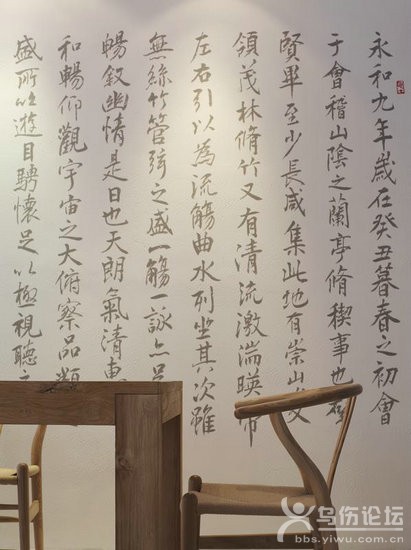 永和九年歲在癸丑暮春之初會
于會稽山陰之蘭亭脩稧事也羣
賢畢至少長咸集此地有崇山峻
領茂林脩竹又有清流激湍暎帶
左右引以為流觴曲水列坐其次雖
無絲竹管弦之盛一觴一詠亦足
暢敘幽情是日也天朗氣清惠
和暢仰觀宇宙之大俯察品類
盛所以遊目騁懷足以極視聽之
乌伤论坛
bbs.yiwu.com